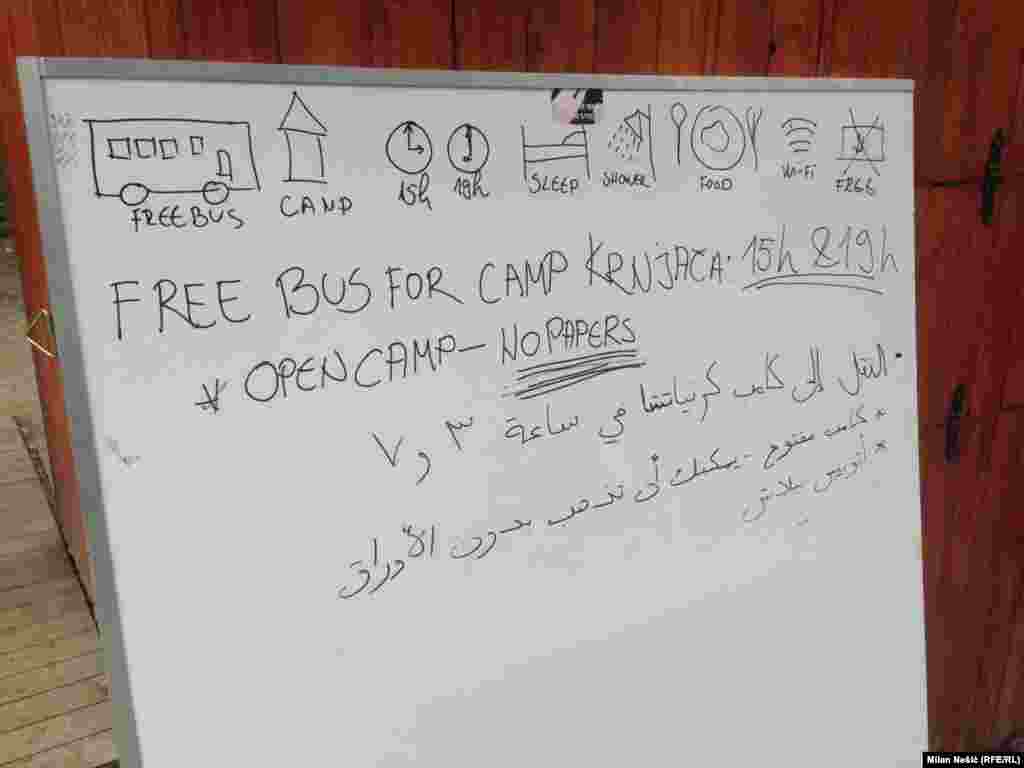 FREE BUS
CAMP
15h
19h
SLEEP
SHOWER
FOOD
Wi-Fi
FREE
FREE BUS FOR CAMP KRNJAČA: 15h & 19h
* OPEN CAMP - NO PAPERS
• النقل إلى كامب كرنياتشا في ساعة ٣ و ٧
* كامب مفتوح - يمكنك أن تذهب بدون الأوراق
* أتوبيس بلاش
Milan Nešić (RFE/RL)